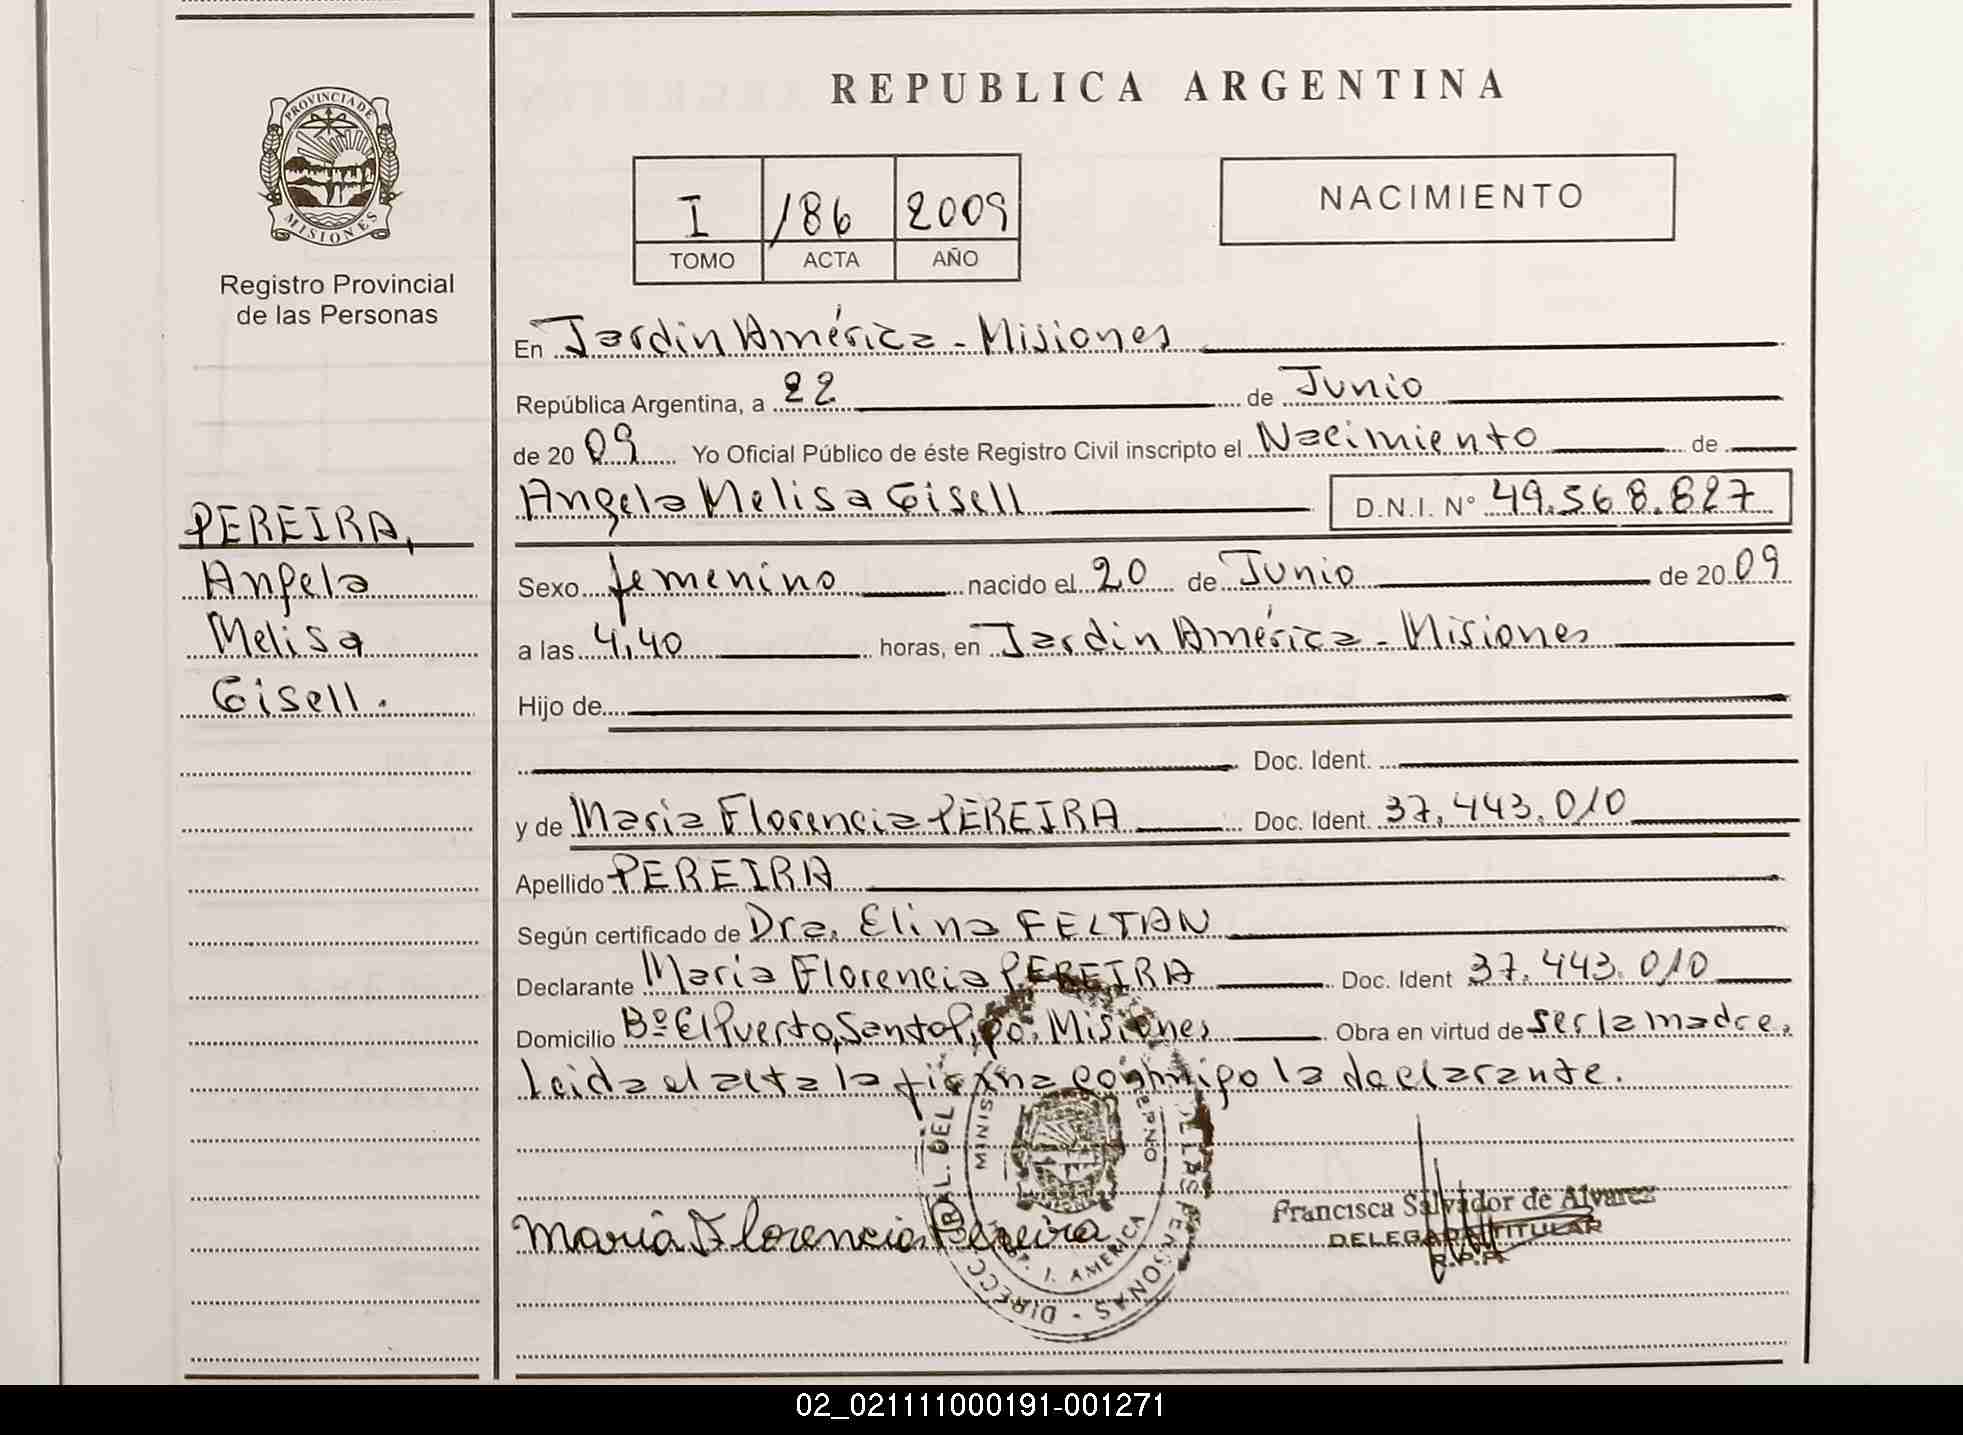 REPUBLICA ARGENTINA
PROVINCIA DE
MISIONES
Registro Provincial
de las Personas
I 186 2009
TOMO ACTA AÑO
NACIMIENTO
En Jardín América - Misiones
República Argentina, a 22 de Junio
de 20 09 Yo Oficial Público de éste Registro Civil inscripto el Nacimiento de
Angela Melisa Gisell D.N.I. N° 49.568.827
PEREIRA,
Angela
Melisa
Gisell.
Sexo femenino nacido el 20 de Junio de 20 09
a las 4,40 horas, en Jardin América - Misiones
Hijo de
Doc. Ident.
y de Maria Florencia PEREIRA Doc. Ident. 37.443.010
Apellido PEREIRA
Según certificado de Dra. Elina FELTAN
Declarante Maria Florencia PEREIRA Doc. Ident 37.443.010
Domicilio Bº El Puerto, Santo Pipo, Misiones Obra en virtud de ser la madre.
Leida el acta la firma conmigo la declarante.
Maria Florencia Pereira
Francisca Salvador de Alvarez
DELEGADA TITULAR
R.P.P.
AMERICA
PERSONAS
02_021111000191-001271